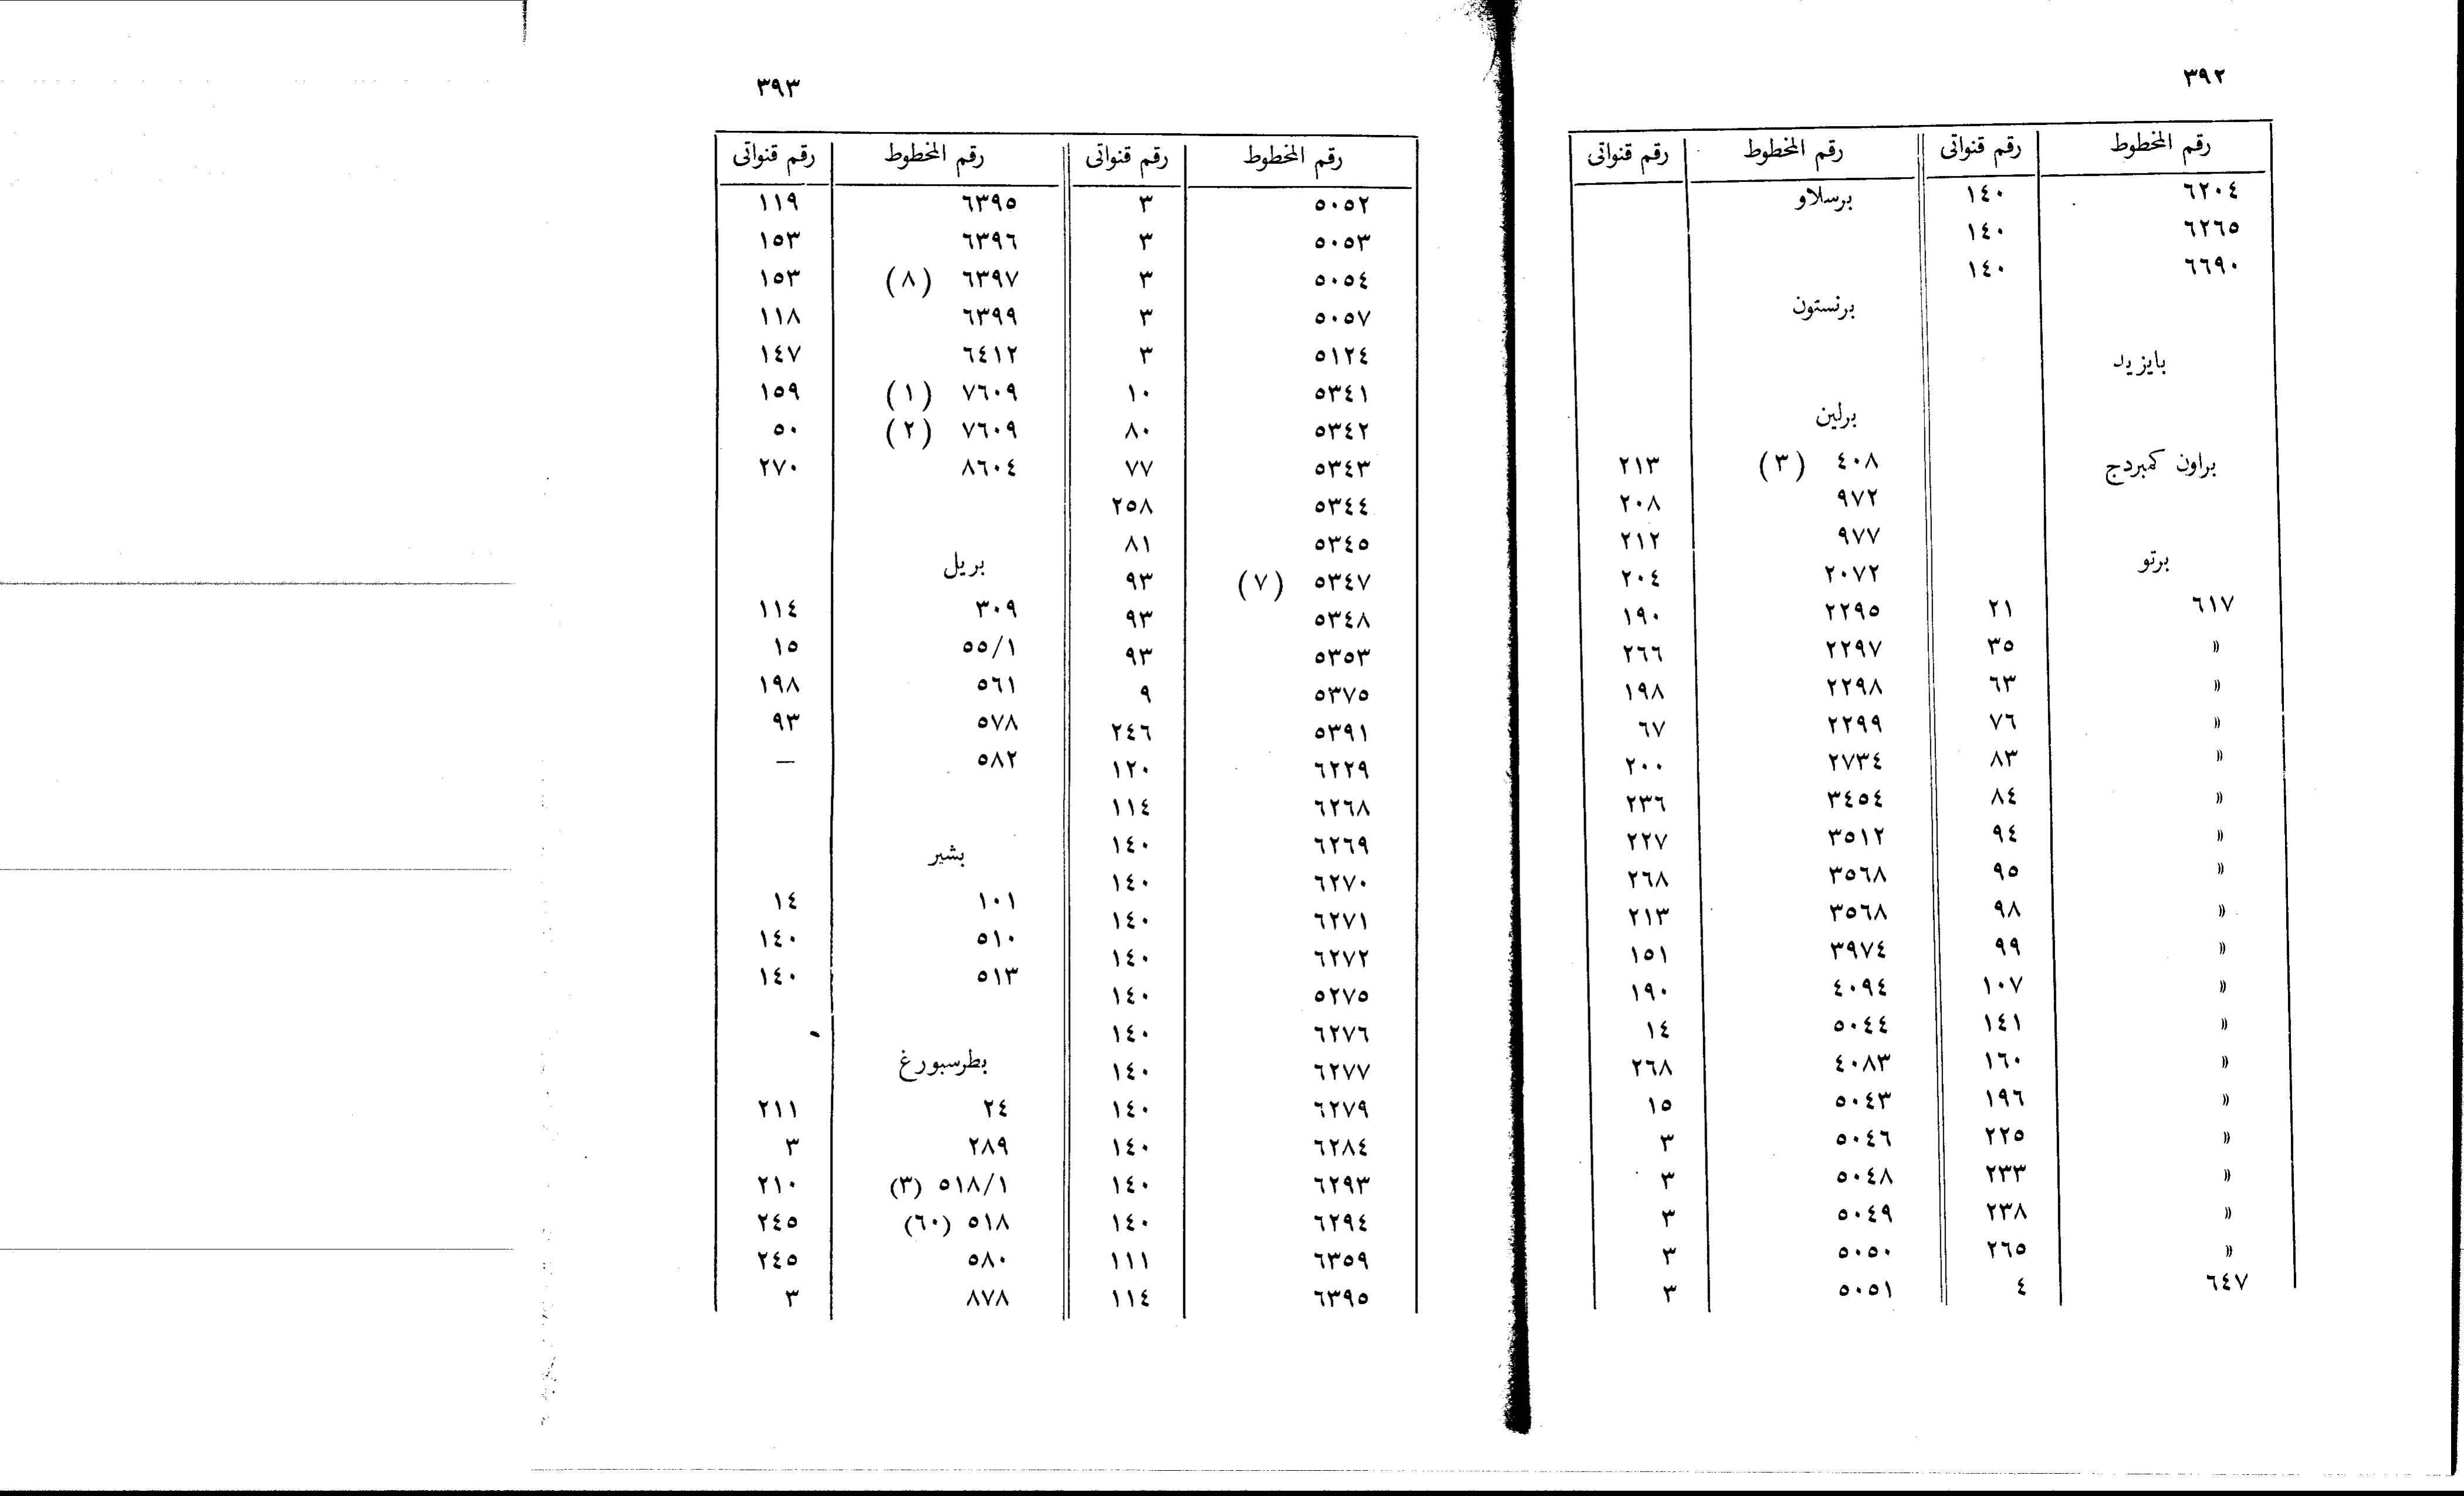 ٣٩٢
رقم المخطوط رقم قنواتى
٦٢٠٤ ١٤٠
٦٢٦٥ ١٤٠
٦٦٩٠ ١٤٠
بايزيد
براون كمبردج
برتو
٦١٧ ٢١
« ٣٥
« ٦٣
« ٧٦
« ٨٣
« ٨٤
« ٩٤
« ٩٥
« ٩٨
« ٩٩
« ١٠٧
« ١٤١
« ١٦٠
« ١٩٦
« ٢٢٥
« ٢٣٣
« ٢٣٨
« ٢٦٥
٦٤٧ ٤
رقم المخطوط رقم قنواتى
برسلاو
برنستون
برلين
٤٠٨ (٣) ٢١٣
٩٧٢ ٢٠٨
٩٧٧ ٢١٢
٢٠٧٢ ٢٠٤
٢٢٩٥ ١٩٠
٢٢٩٧ ٢٦٦
٢٢٩٨ ١٩٨
٢٢٩٩ ٦٧
٢٧٣٤ ٢٠٠
٣٤٥٤ ٢٣٦
٣٥١٢ ٢٢٧
٣٥٦٨ ٢٦٨
٣٥٦٨ ٢١٣
٣٩٧٤ ١٥١
٤٠٩٤ ١٩٠
٥٠٤٤ ١٤
٤٠٨٣ ٢٦٨
٥٠٤٣ ١٥
٥٠٤٦ ٣
٥٠٤٨ ٣
٥٠٤٩ ٣
٥٠٥٠ ٣
٥٠٥١ ٣
٣٩٣
رقم المخطوط رقم قنواتى
٥٠٥٢ ٣
٥٠٥٣ ٣
٥٠٥٤ ٣
٥٠٥٧ ٣
٥١٢٤ ٣
٥٣٤١ ١٠
٥٣٤٢ ٨٠
٥٣٤٣ ٧٧
٥٣٤٤ ٢٥٨
٥٣٤٥ ٨١
٥٣٤٧ (٧) ٩٣
٥٣٤٨ ٩٣
٥٣٥٣ ٩٣
٥٣٧٥ ٩
٥٣٩١ ٢٤٦
٦٢٢٩ ١٢٠
٦٢٦٨ ١١٤
٦٢٦٩ ١٤٠
٦٢٧٠ ١٤٠
٦٢٧١ ١٤٠
٦٢٧٢ ١٤٠
٥٢٧٥ ١٤٠
٦٢٧٦ ١٤٠
٦٢٧٧ ١٤٠
٦٢٧٩ ١٤٠
٦٢٨٤ ١٤٠
٦٢٩٣ ١٤٠
٦٢٩٤ ١٤٠
٦٣٥٩ ١١١
٦٣٩٥ ١١٤
رقم المخطوط رقم قنواتى
٦٣٩٥ ١١٩
٦٣٩٦ ١٥٣
٦٣٩٧ (٨) ١٥٣
٦٣٩٩ ١١٨
٦٤١٢ ١٤٧
٧٦٠٩ (١) ١٥٩
٧٦٠٩ (٢) ٥٠
٨٦٠٤ ٢٧٠
بريل
٣٠٩ ١١٤
٥٥/١ ١٥
٥٦١ ١٩٨
٥٧٨ ٩٣
٥٨٢ —
بشير
١٠١ ١٤
٥١٠ ١٤٠
٥١٣ ١٤٠
بطرسبورغ
٢٤ ٢١١
٢٨٩ ٣
٥١٨/١ (٣) ٢١٠
٥١٨ (٦٠) ٢٤٥
٥٨٠ ٢٤٥
٨٧٨ ٣